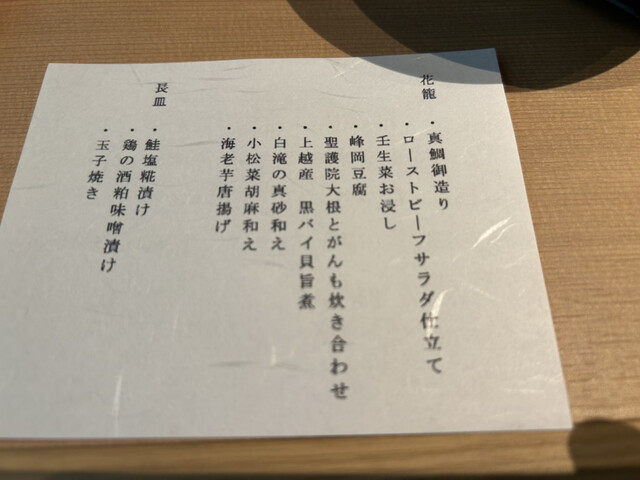 花籠
・真鯛御造り
・ローストビーフサラダ仕立て
・壬生菜お浸し
・峰岡豆腐
・聖護院大根とがんも炊き合わせ
・上越産 黒バイ貝旨煮
・白滝の真砂和え
・小松菜胡麻和え
・海老芋唐揚げ
長皿
・鮭塩糀漬け
・鶏の酒粕味噌漬け
・玉子焼き